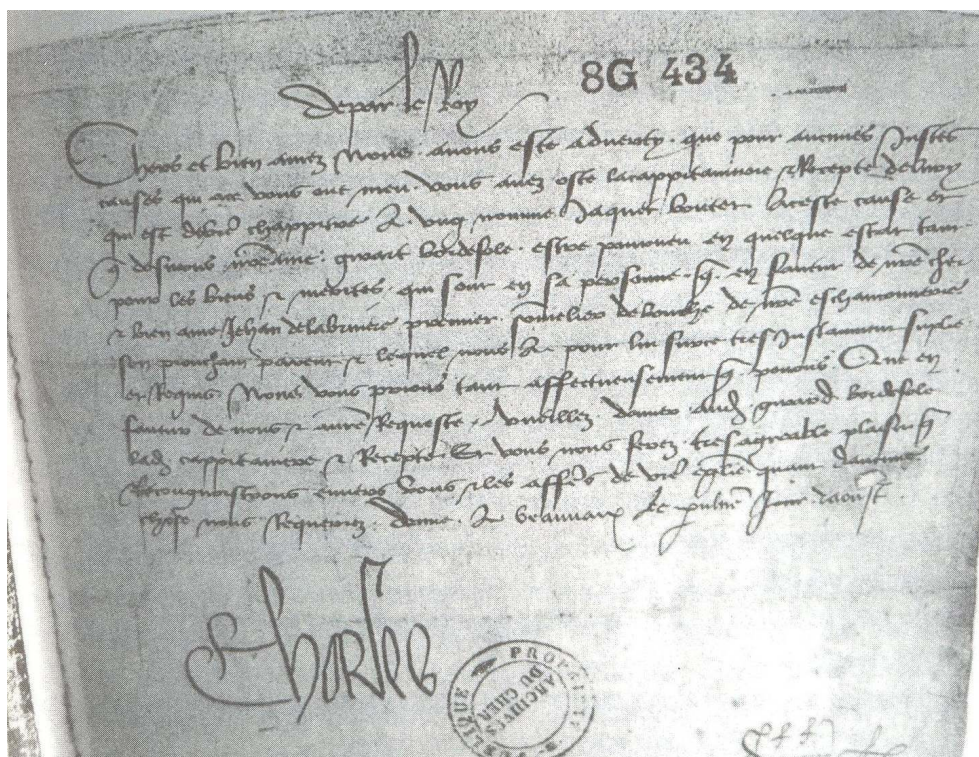 8G 434
De par le Roy
Chers et bien amez Nous avons este adverty que pour aucunes Justes
causes qui a ce vous ont meu vous avez oste la cappitainnerie & Recepte de
qui est de vre chappitre A ung nomme Jaquet bouter A ceste cause et
que desirons nre ame girart bordesole estre pourveu en quelque estat tant
pour les biens & merites qui sont en sa personne que en faveur de nre cher
& bien ame Jehan de la premier sommelier de bouche de nre eschançonnerie
son prouchain parent & lequel nous A pour lui sur ce tres Instamment suplie
et Requis Nous vous prions tant affectueusement que povons Que en
faveur de nous & a nre Requeste Vueillez donner aud girard bordesole
lad cappitainerie & Recepte Et vous nous ferez tres agreable plaisir que
Recongnoistrons envers vous & les affes de vre eglise quant d'aucune
chose nous Requerrez donne A le Jour d'aoust
Charles
PROPRIETE PUBLIQUE
ARCHIVES DU CHER